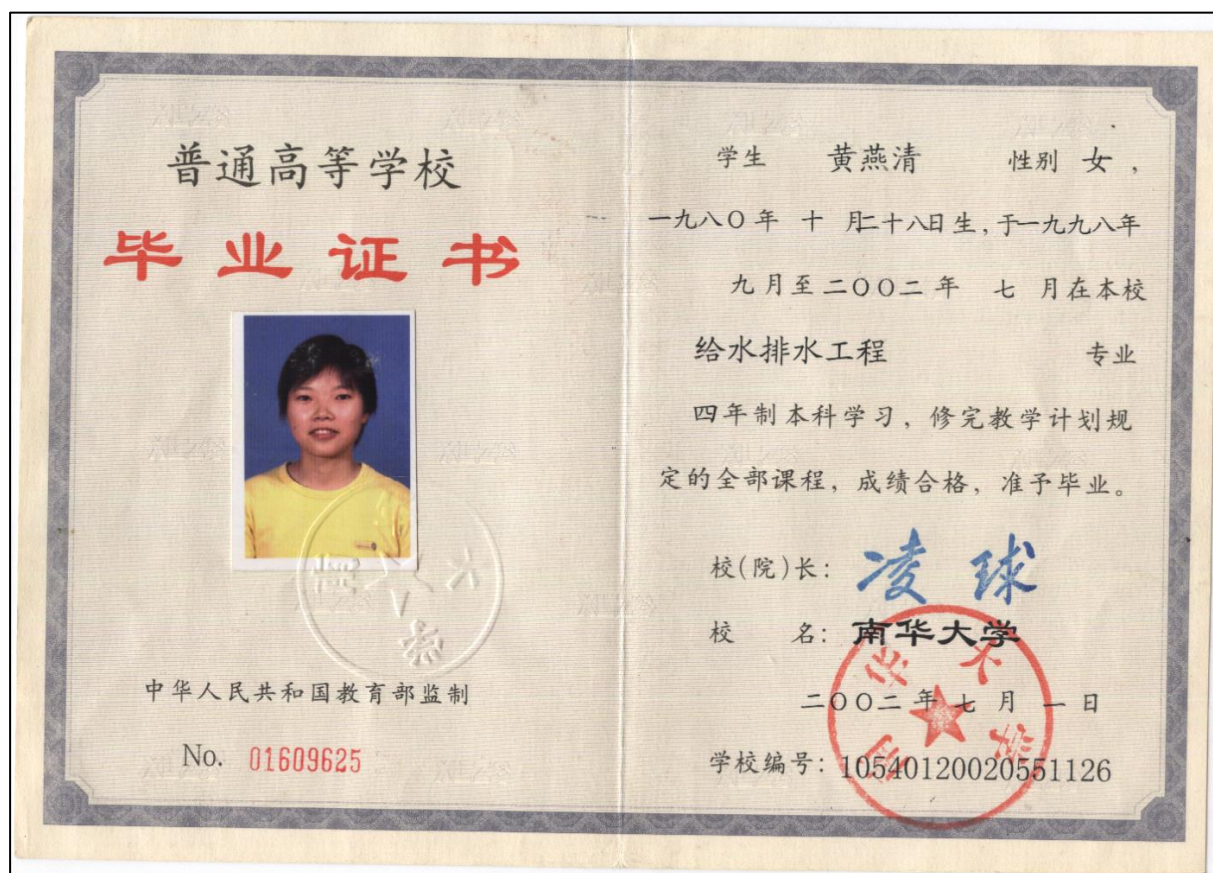 普通高等学校
毕业证书
中华人民共和国教育部监制
No. 01609625
学生 黄燕清 性别 女,
一九八〇年 十 月二十八日生,于一九九八年
九月至二〇〇二年 七 月在本校
给水排水工程 专业
四年制本科学习,修完教学计划规
定的全部课程,成绩合格,准予毕业。
校(院)长: 凌球
校 名: 南华大学
二〇〇二年七月一日
学校编号: 105401200205551126
南华大学